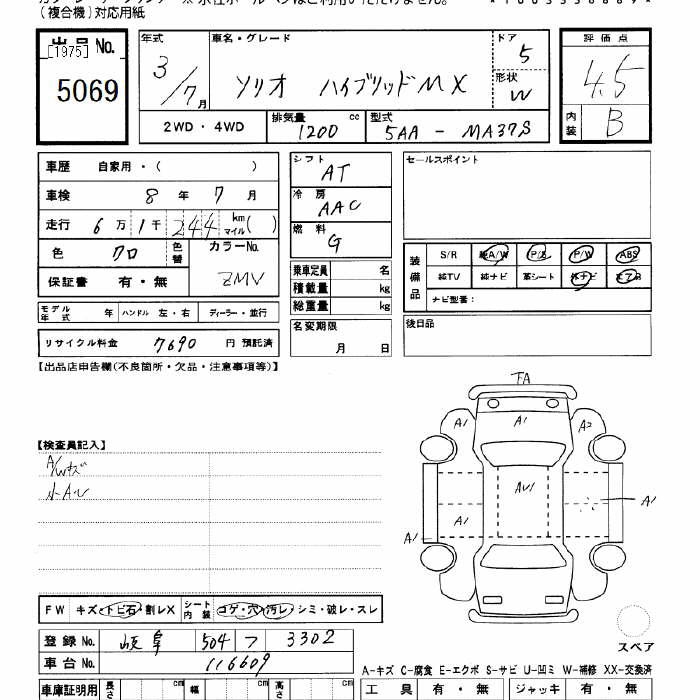 (複合機)対応用紙
出品 No. 年式 車名・グレード ドア 評価点
[1975] 3/7月 ソリオ ハイブリッドMX 5 4.5
5069 形状 W
2WD・4WD 排気量 cc 1200 型式 5AA - MA37S 内装 B
車歴 自家用・( ) シフト AT セールスポイント
車検 8年 7月 冷房 AAC
走行 6万1千244 km マイル( ) 燃料 G
色 クロ 色替 カラーNo. ZMV 装備品 S/R 純A/W P/S P/W ABS
保証書 有・無 乗車定員 名 純TV 純ナビ 革シート
積載量 kg ナビ型番:
モデル年式 年 ハンドル 左・右 ディーラー・並行 総重量 kg
リサイクル料金 7690 円 預託済 名変期限 月 日 後日品
【出品店申告欄(不良箇所・欠品・注意事項等)】
FA
A1 A1 A2
【検査員記入】
A/Wキズ
小A・U
AU1
A1 A1
A1
FW キズ・トビ石・割レX シート内装 コゲ・穴・汚レ・シミ・破レ・スレ
登録 No. 岐阜 504 フ 3302 スペア
車台 No. 116609
A-キズ C-腐食 E-エクボ S-サビ U-凹ミ W-補修 XX-交換済
車庫証明用 長さ cm 幅 cm 高さ cm 工具 有・無 ジャッキ 有・無